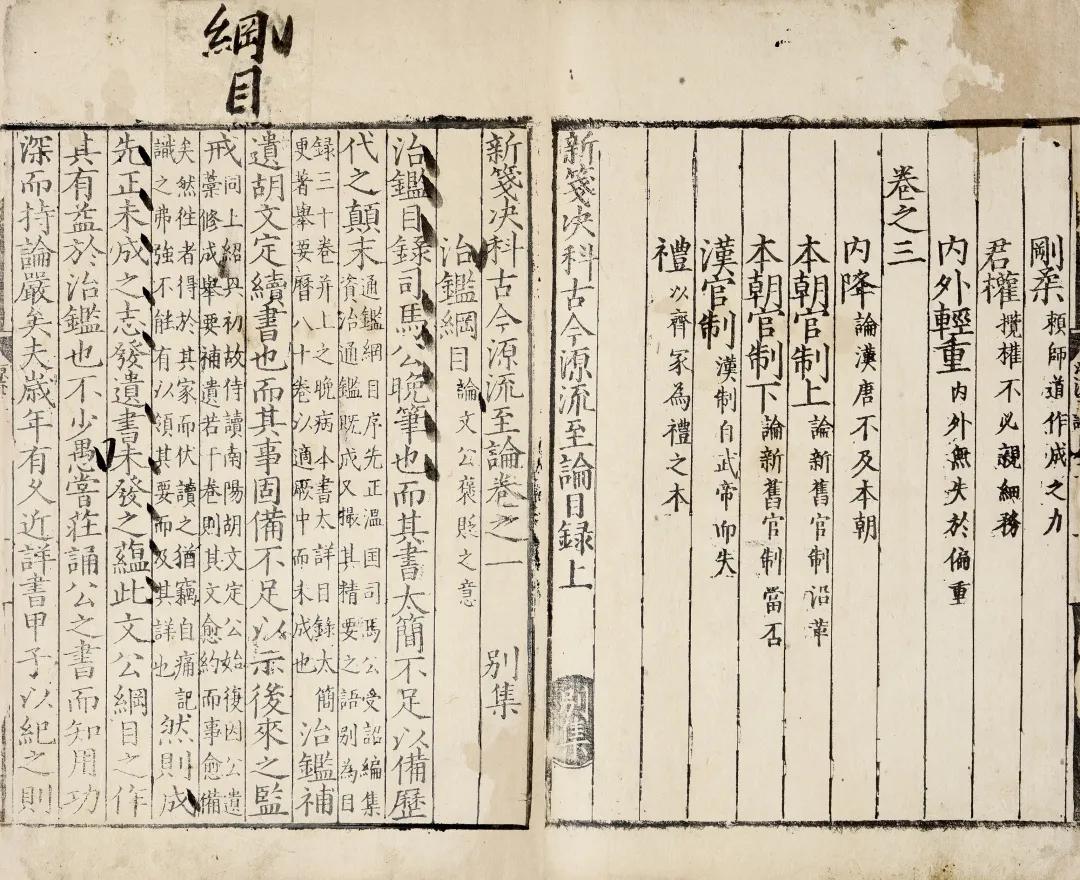 剛柔賴師道作成之力
君權攬權不必親細務
內外輕重內外無失於偏重
卷之三
內降論漢唐不及本朝
本朝官制上論新舊官制沿革
本朝官制下論新舊官制當否
漢官制漢制自武帝而失
禮以齊家為禮之本
新箋决科古今源流至論目録上 別集
綱目
新箋决科古今源流至論卷之一 別集
治鑑綱目論文公褒貶之意
治鑑目録司馬公晚筆也而其書太簡不足以備歷
代之顛末通鑑綱目序先正温国司馬公受詔編集資治通鑑既成又撮其精要之語別為目
録三十卷并上之晚病本書太詳目錄太簡更著舉要曆八十卷以適厥中而未成也治鑑補
遺胡文定續書也而其事固備不足以示後來之監
戒同上紹興初故侍讀南陽胡文定公始復因公遺藁修成舉要補遺若干卷則其文愈約而事愈備
矣然徃者得於其家而伏讀之猶竊自病記識之弗強不能有以領其要而及其詳也然則成
先正未成之志發遺書未發之藴此文公綱目之作
其有益於治鑑也不少愚嘗莊誦公之書而知用功
深而持論嚴矣夫歲年有久近詳書甲子以紀之則